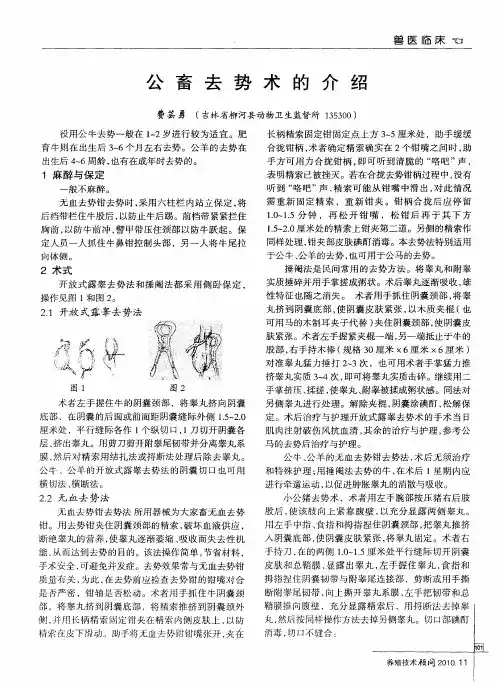 兽医临床
公畜去势术的介绍
费芸勇 (吉林省柳河县动物卫生监督所 135300)
役用公牛去势一般在1~2岁进行较为适宜。肥
育牛则在出生后3~6个月左右去势。公羊的去势在
出生后4~6周龄,也有在成年时去势的。
1 麻醉与保定
一般不麻醉。
无血去势钳去势时,采用六柱栏内站立保定,将
后裆带拦住牛股后,以防止牛后踢。前裆带紧紧拦住
胸前,以防牛前冲,鬐甲带压住颈部以防牛跃起。保
定人员一人抓住牛鼻钳控制头部,另一人将牛尾拉
向体侧。
2 术式
开放式露睾去势法和捶阉法都采用侧卧保定,
操作见图1和图2。
2.1 开放式露睾去势法
图1
图2
术者左手握住牛的阴囊颈部,将睾丸挤向阴囊
底部,在阴囊的后面或前面距阴囊缝际外侧1.5~2.0
厘米处,平行缝际各作1个纵切口,1刀切开阴囊各
层,挤出睾丸。用剪刀剪开附睾尾韧带并分离睾丸系
膜,然后对精索用结扎法或捋断法处理后除去睾丸。
公牛、公羊的开放式露睾去势法的阴囊切口也可用
横切法、横断法。
2.2 无血去势法
无血去势钳去势法 所用器械为大家畜无血去势
钳。用去势钳夹住阴囊颈部的精索,破坏血液供应,
断绝睾丸的营养,使睾丸逐渐萎缩、吸收而失去性机
能,从而达到去势的目的。该法操作简单,节省材料,
手术安全,可避免并发症。去势效果常与无血去势钳
质量有关,为此,在去势前应检查去势钳的钳嘴对合
是否严密,钳轴是否松动。术者用手抓住牛阴囊颈
部,将睾丸挤到阴囊底部,将精索推挤到阴囊颈外
侧,并用长柄精索固定钳夹在精索内侧皮肤上,以防
精索在皮下滑动。助手将无血去势钳钳嘴张开,夹在
长柄精索固定钳固定点上方3~5厘米处,助手缓缓
合拢钳柄,术者确定精索确实在2个钳嘴之间时,助
手方可用力合拢钳柄,即可听到清脆的“咯吧”声,
表明精索已被挫灭。若在合拢去势钳柄过程中,没有
听到“咯吧”声,精索可能从钳嘴中滑出,对此情况
需重新固定精索,重新钳夹。钳柄合拢后应停留
1.0~1.5分钟,再松开钳嘴,松钳后再于其下方
1.5~2.0厘米处的精索上钳夹第二道。另侧的精索作
同样处理,钳夹部皮肤碘酊消毒。本去势法特别适用
于公牛、公羊的去势,也可用于公马的去势。
捶阉法是民间常用的去势方法。将睾丸和附睾
实质捶碎并用手搓成粥状。术后睾丸逐渐吸收,雄
性特征也随之消失。 术者用手抓住阴囊颈部,将睾
丸挤到阴囊底部,使阴囊皮肤紧张,以木质夹棍(也
可用马的木制耳夹子代替)夹住阴囊颈部,使阴囊皮
肤紧张。术者左手握紧夹棍一端,另一端抵止于牛的
股部,右手持木棒(规格30厘米×6厘米×6厘米)
对准睾丸猛力捶打2~3次,也可用术者手掌猛力推
挤睾丸实质3~4次,即可将睾丸实质击碎。继续用二
手掌挤压、揉搓,使睾丸、附睾被揉成粥状感。同法对
另侧睾丸进行处理。解除夹棍,阴囊涂碘酊,松解保
定。术后治疗与护理开放式露睾去势术的手术当日
肌肉注射破伤风抗血清,其余的治疗与护理,参考公
马的去势后治疗与护理。
公牛、公羊的无血去势钳去势法,术后无须治疗
和特殊护理;用捶阉法去势的牛,在术后1星期内应
进行牵遛运动,以促进肿胀睾丸的消散与吸收。
小公猪去势术,术者用左手腕部按压猪右后肢
股后,使该肢向上紧靠腹壁,以充分显露两侧睾丸。
用左手中指、食指和拇指捏住阴囊颈部,把睾丸推挤
入阴囊底部,使阴囊皮肤紧张,将睾丸固定。术者右
手持刀,在的两侧1.0~1.5厘米处平行缝际切开阴囊
皮肤和总鞘膜,显露出睾丸,左手握住睾丸,食指和
拇指捏住阴囊韧带与附睾尾连接部,剪断或用手撕
断附睾尾韧带,向上撕开睾丸系膜,左手把韧带和总
鞘膜推向腹壁,充分显露精索后,用捋断法去掉睾
丸,然后按同样操作方法去掉另侧睾丸。切口部碘酊
消毒,切口不缝合。
101
养殖技术顾问2010.11